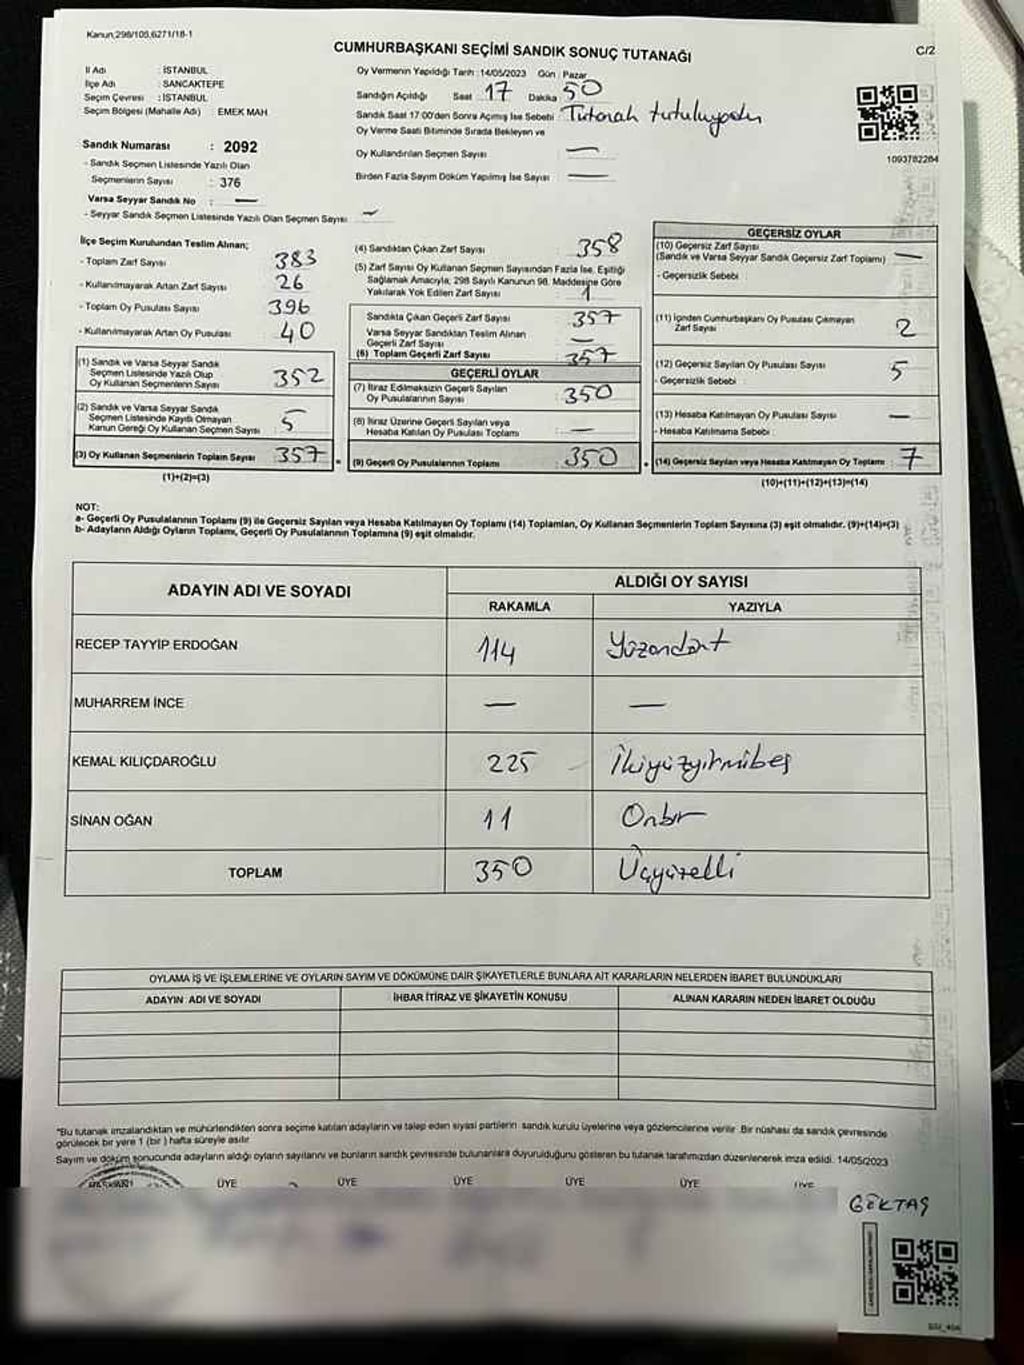 Kanun,298/105,6271/18-1
CUMHURBAŞKANI SEÇİMİ SANDIK SONUÇ TUTANAĞI
C/2
İl Adı : İSTANBUL
İlçe Adı : SANCAKTEPE
Seçim Çevresi : İSTANBUL
Seçim Bölgesi (Mahalle Adı) EMEK MAH
Oy Vermenin Yapıldığı Tarih : 14/05/2023 Gün : Pazar
Sandığın Açıldığı Saat 17 Dakika 50
Sandık Saat 17:00'den Sonra Açımış İse Sebebi : Tutanak tutuluyordu
Oy Verme Saati Bitiminde Sırada Bekleyen ve
Oy Kullandırılan Seçmen Sayısı : —
Birden Fazla Sayım Döküm Yapılmış İse Sayısı : —
1093782264
Sandık Numarası : 2092
- Sandık Seçmen Listesinde Yazılı Olan
Seçmenlerin Sayısı : 376
Varsa Seyyar Sandık No : —
- Seyyar Sandık Seçmen Listesinde Yazılı Olan Seçmen Sayısı : —
İlçe Seçim Kurulundan Teslim Alınan;
- Toplam Zarf Sayısı : 383
- Kullanılmayarak Artan Zarf Sayısı : 26
- Toplam Oy Pusulası Sayısı : 396
- Kullanılmayarak Artan Oy Pusulası : 40
(1) Sandık ve Varsa Seyyar Sandık
Seçmen Listesinde Yazılı Olup
Oy Kullanan Seçmenlerin Sayısı : 352
(2) Sandık ve Varsa Seyyar Sandık
Seçmen Listesinde Kayıtlı Olmayan
Kanun Gereği Oy Kullanan Seçmen Sayısı : 5
(3) Oy Kullanan Seçmenlerin Toplam Sayısı : 357
(1)+(2)=(3)
(4) Sandıktan Çıkan Zarf Sayısı : 358
(5) Zarf Sayısı Oy Kullanan Seçmen Sayısından Fazla İse, Eşitliği
Sağlamak Amacıyla; 298 Sayılı Kanunun 98. Maddesine Göre
Yakılarak Yok Edilen Zarf Sayısı : 1
Sandıkta Çıkan Geçerli Zarf Sayısı : 357
Varsa Seyyar Sandıktan Teslim Alınan
Geçerli Zarf Sayısı : —
(6) Toplam Geçerli Zarf Sayısı : 357
GEÇERLİ OYLAR
(7) İtiraz Edilmeksizin Geçerli Sayılan
Oy Pusulalarının Sayısı : 350
(8) İtiraz Üzerine Geçerli Sayılan veya
Hesaba Katılan Oy Pusulası Toplamı : —
(9) Geçerli Oy Pusulalarının Toplamı : 350
GEÇERSİZ OYLAR
(10) Geçersiz Zarf Sayısı
(Sandık ve Varsa Seyyar Sandık Geçersiz Zarf Toplamı) : —
- Geçersizlik Sebebi :
(11) İçinden Cumhurbaşkanı Oy Pusulası Çıkmayan
Zarf Sayısı : 2
(12) Geçersiz Sayılan Oy Pusulası Sayısı : 5
- Geçersizlik Sebebi :
(13) Hesaba Katılmayan Oy Pusulası Sayısı : —
- Hesaba Katılmama Sebebi :
(14) Geçersiz Sayılan veya Hesaba Katılmayan Oy Toplamı : 7
(10)+(11)+(12)+(13)=(14)
NOT:
a- Geçerli Oy Pusulalarının Toplamı (9) ile Geçersiz Sayılan veya Hesaba Katılmayan Oy Toplamı (14) Toplamları, Oy Kullanan Seçmenlerin Toplam Sayısına (3) eşit olmalıdır. (9)+(14)=(3)
b- Adayların Aldığı Oyların Toplamı, Geçerli Oy Pusulalarının Toplamına (9) eşit olmalıdır.
ADAYIN ADI VE SOYADI
ALDIĞI OY SAYISI
RAKAMLA YAZIYLA
RECEP TAYYİP ERDOĞAN 114 Yüzondört
MUHARREM İNCE — —
KEMAL KILIÇDAROĞLU 225 İkiyüzyirmibeş
SİNAN OĞAN 11 Onbir
TOPLAM 350 Üçyüzelli
OYLAMA İŞ VE İŞLEMLERİNE VE OYLARIN SAYIM VE DÖKÜMÜNE DAİR ŞİKAYETLERLE BUNLARA AİT KARARLARIN NELERDEN İBARET BULUNDUKLARI
ADAYIN ADI VE SOYADI İHBAR İTİRAZ VE ŞİKAYETİN KONUSU ALINAN KARARIN NEDEN İBARET OLDUĞU
"Bu tutanak imzalandıktan ve mühürlendikten sonra seçime katılan adayların ve talep eden siyasi partilerin sandık kurulu üyelerine veya gözlemcilerine verilir. Bir nüshası da sandık çevresinde
görülecek bir yere 1 (bir) hafta süreyle asılır.
Sayım ve döküm sonucunda adayların aldığı oyların sayılarını ve bunların sandık çevresinde bulunanlara duyurulduğunu gösteren bu tutanak tarafımızdan düzenlenerek imza edildi. 14/05/2023
ÜYE ÜYE ÜYE ÜYE ÜYE ÜYE
GÖKTAŞ